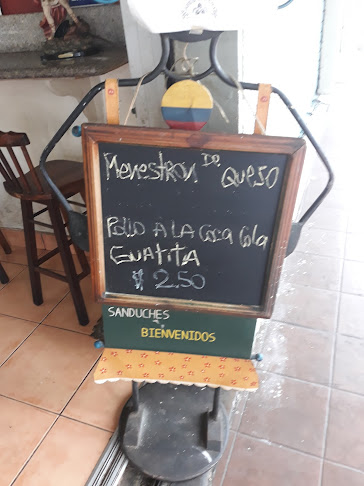 Menestron De Queso
Pollo A LA Coca Cola
GuATiTA
$ 2.50
SANDUCHES
BIENVENIDOS